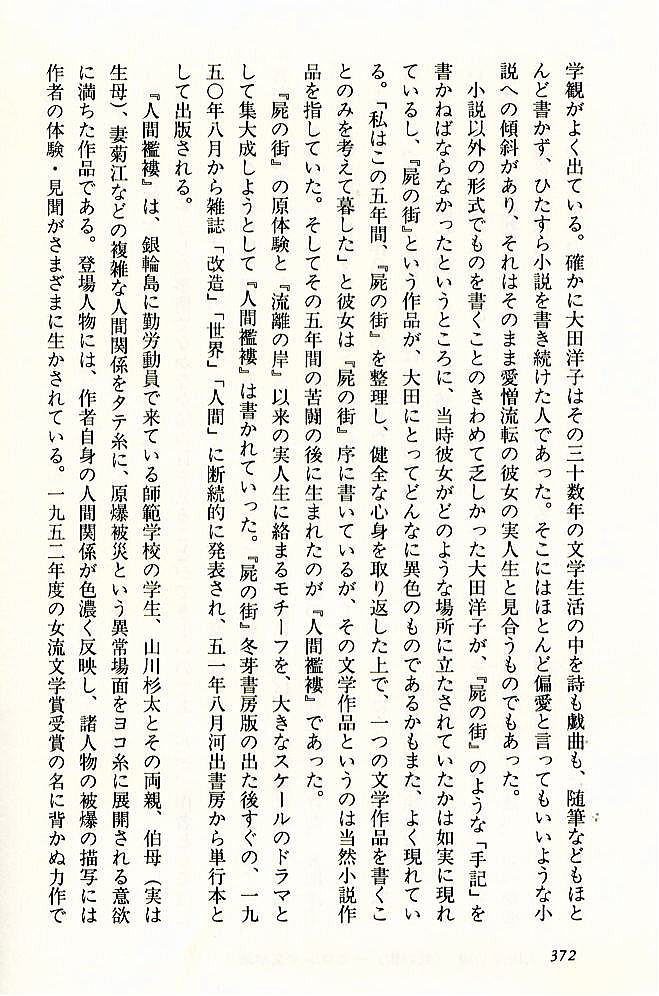 学観がよく出ている。確かに大田洋子はその三十数年の文学生活の中を詩も戯曲も、随筆などもほと
んど書かず、ひたすら小説を書き続けた人であった。そこにはほとんど偏愛と言ってもいいような小
説への傾斜があり、それはそのまま愛憎流転の彼女の実人生と見合うものでもあった。
小説以外の形式でものを書くことのきわめて乏しかった大田洋子が、『屍の街』のような「手記」を
書かねばならなかったというところに、当時彼女がどのような場所に立たされていたかは如実に現れ
ているし、『屍の街』という作品が、大田にとってどんなに異色のものであるかもまた、よく現れてい
る。「私はこの五年間、『屍の街』を整理し、健全な心身を取り返した上で、一つの文学作品を書くこ
とのみを考えて暮した」と彼女は『屍の街』序に書いているが、その文学作品というのは当然小説作
品を指していた。そしてその五年間の苦闘の後に生まれたのが『人間襤褸』であった。
『屍の街』の原体験と『流離の岸』以来の実人生に絡まるモチーフを、大きなスケールのドラマと
して集大成しようとして『人間襤褸』は書かれていった。『屍の街』冬芽書房版の出た後すぐの、一九
五〇年八月から雑誌「改造」「世界」「人間」に断続的に発表され、五一年八月河出書房から単行本と
して出版される。
『人間襤褸』は、銀輪島に勤労動員で来ている師範学校の学生、山川杉太とその両親、伯母（実は
生母）、妻菊江などの複雑な人間関係をタテ糸に、原爆被災という異常場面をヨコ糸に展開される意欲
に満ちた作品である。登場人物には、作者自身の人間関係が色濃く反映し、諸人物の被爆の描写には
作者の体験・見聞がさまざまに生かされている。一九五二年度の女流文学賞受賞の名に背かぬ力作で
372